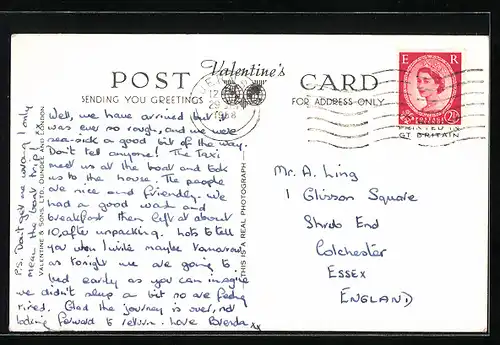 POST
Valentine's
CARD
SENDING YOU GREETINGS
FOR ADDRESS ONLY
E R
2½
PRINTED IN
GT BRITAIN
Well, we have arrived but it
was ever so rough, and we were
sea-sick a good bit of the way.
Don't tell anyone! The taxi
met us at the boat and took
us to the house. The people
are nice and friendly. We
had a good wash and
breakfast then left at about
10, after unpacking. Lots to tell
you when I write maybe tomorrow
as tonight we are going to
bed early as you can imagine
we didn't sleep a bit so are feeling
tired. Glad the journey is over, not
looking forward to return. Love Brenda xx
P.S. Don't get me wrong I only
mean the boat trip!
VALENTINE & SONS, LTD., DUNDEE AND LONDON
THIS IS A REAL PHOTOGRAPH
Mr. A. Ling
1 Glisson Square
Shrub End
Colchester
ESSEX
ENGLAND